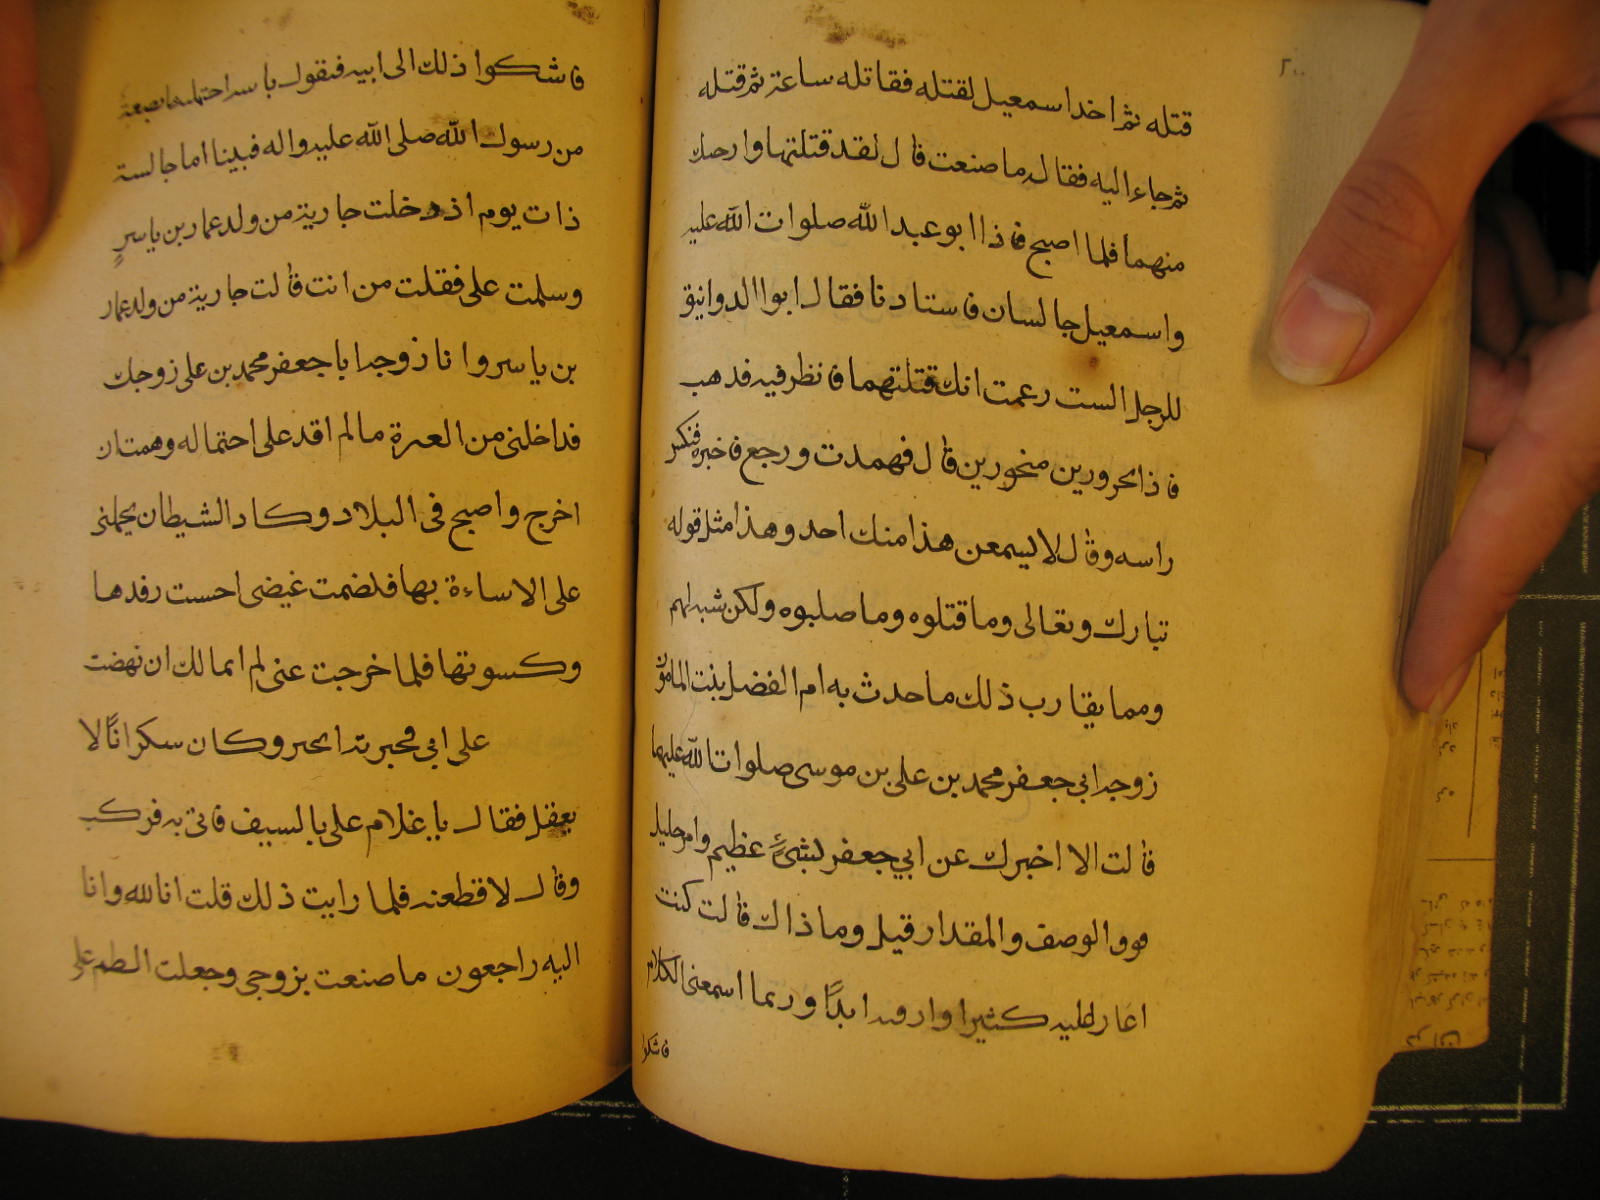 ٢٠٠
قتله ثم اخذ اسمعيل لقتله فقاتله ساعة ثم قتله
ثم جاء اليه فقال ما صنعت قال لقد قتلتهما وارحتك
منهما فلما اصبح فاذا ابو عبد الله صلوات الله عليه
واسمعيل جالسان فاستاذنا فقال ابوا الدوانيق
للرجل الست زعمت انك قتلتهما فانظر فيه فذهب
فاذا بجزورين منحورين قال فبهت ورجع فاخبره فنكس
راسه وقال لا يسمعن هذا منك احد وهذا مثل قوله
تبارك وتعالى وما قتلوه وما صلبوه ولكن شبه لهم
ومما يقارب ذلك ما حدث به ام الفضل بنت المامون
زوجه ابي جعفر محمد بن علي بن موسى صلوات الله عليهما
قالت الا اخبرك عن ابي جعفر لبشئ عظيم وامر جليل
فوق الوصف والمقدار قيل وما ذاك قالت كنت
اغار عليه كثيرا وارقبه ابدًا وربما اسمعنى الكلام
فاشكوا
فاشكوا ذلك الى ابيه فيقول يا احتمليه بضعة
من رسول الله صلى الله عليه واله فبينا انا جالسة
ذات يوم اذ دخلت جارية من ولد عمار بن ياسرٍ
وسلمت على فقلت من انت قالت جارية من ولد عمار
بن ياسر وانا زوجه ابا جعفر محمد بن على زوجك
فداخلنى من الغيرة ما لم اقد على احتماله وهمت ان
اخرج واصبح فى البلاد وكاد الشيطان يحملنى
على الاساءة بها فكضمت غيضى احست رفدها
وكسوتها فلما خرجت عنى لم اتمالك ان نهضت
على ابي وكان سكرانًا لا
يعقل فقال يا غلام على بالسيف فاتى به فركب
وقال لاقطعنه فلما رايت ذلك قلت انا لله وانا
اليه راجعون ما صنعت بزوجى وجعلت الطم على